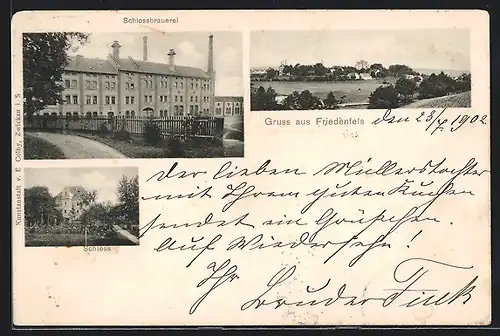 Schlossbrauerei
Gruss aus Friedenfels
den 28/7 1902
Kunstanstalt v. E. Colby, Zwickau i. S.
Schloss
Der lieben Müllerstochter
mit Ihrem guten Kuchen
sendet ein Grüßchen.
Auf Wiedersehn!
Ihr
Bruder Fink